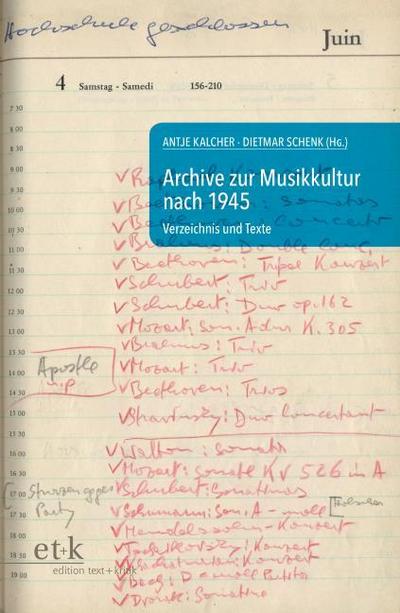 Hochschule geschlossen
Juin
4 Samstag - Samedi 156-210
ANTJE KALCHER · DIETMAR SCHENK (Hg.)
Archive zur Musikkultur
nach 1945
Verzeichnis und Texte
7 30
8 00
8 30
9 00
9 30
10 00
10 30
11 00
11 30
12 00
12 30
13 00
13 30
14 00
14 30
15 00
15 30
16 00
16 30
17 00
17 30
18 00
18 30
19 00
✓Beethoven: Tripel Konzert
✓Schubert: Trio
✓Schubert: Duo op. 162
✓Mozart: Son. A dur K. 305
✓Brahms: Trio
Apostle
✓Mozart: Trio
✓Beethoven: Trios
✓Stravinsky: Duo Concertant
✓Walton: Sonata
✓Mozart: Sonate KV 526 in A
✓Schubert: Sonatinas
Party
✓Schumann: Son. A-moll
✓Mendelssohn-Konzert
✓Tschaikovsky: Konzert
✓Bach: D-moll Partita
✓Dvorak: Sonatina
et+k
edition text+kritik